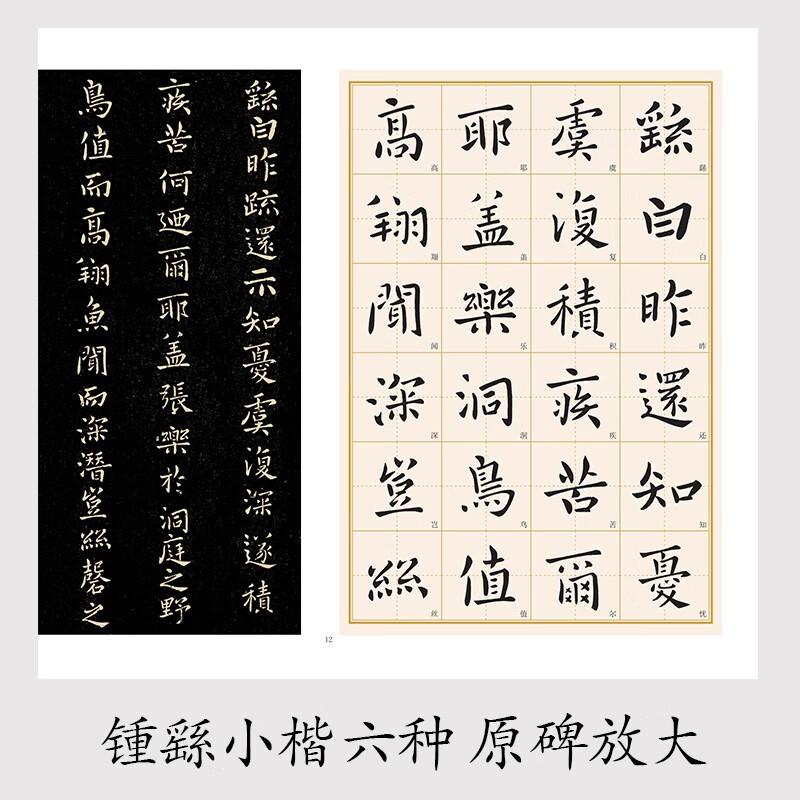 繇白昨疏還示知憂虞復深遂積
疾苦何迺爾耶盖張樂於洞庭之野
鳥值而高翔魚聞而深潛豈絲磬之
繇白昨還知憂
虞復積疾苦爾
耶盖樂洞鳥值
高翔聞深豈絲
繇白昨还知忧
虞复积疾苦尔
耶盖乐洞鸟值
高翔闻深岂丝
12
锺繇小楷六种 原碑放大